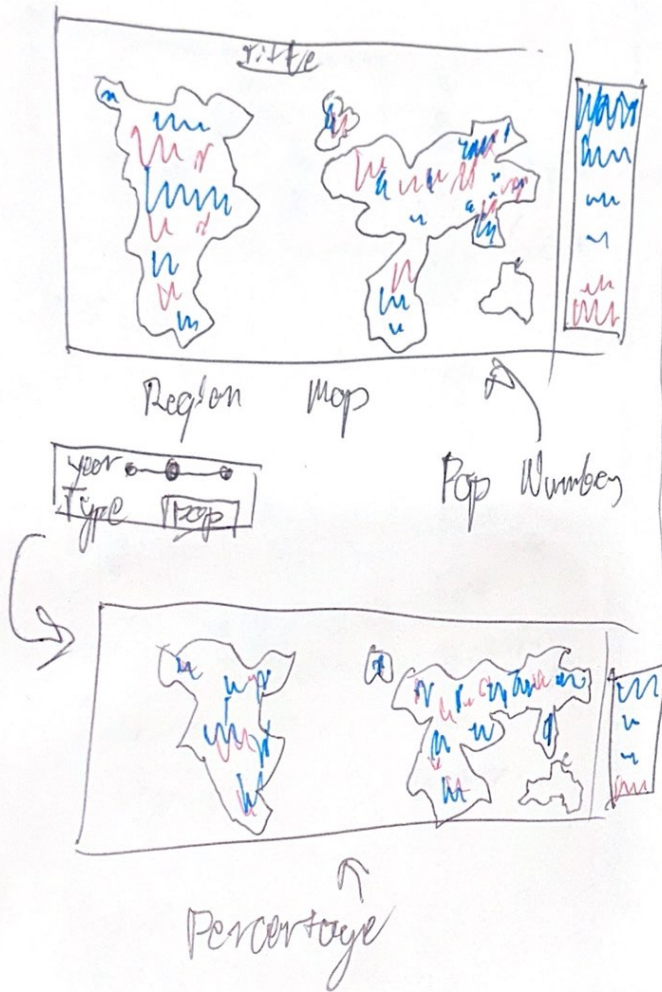 Title
Region Map
Pop Number
year
Type pop
Percentage